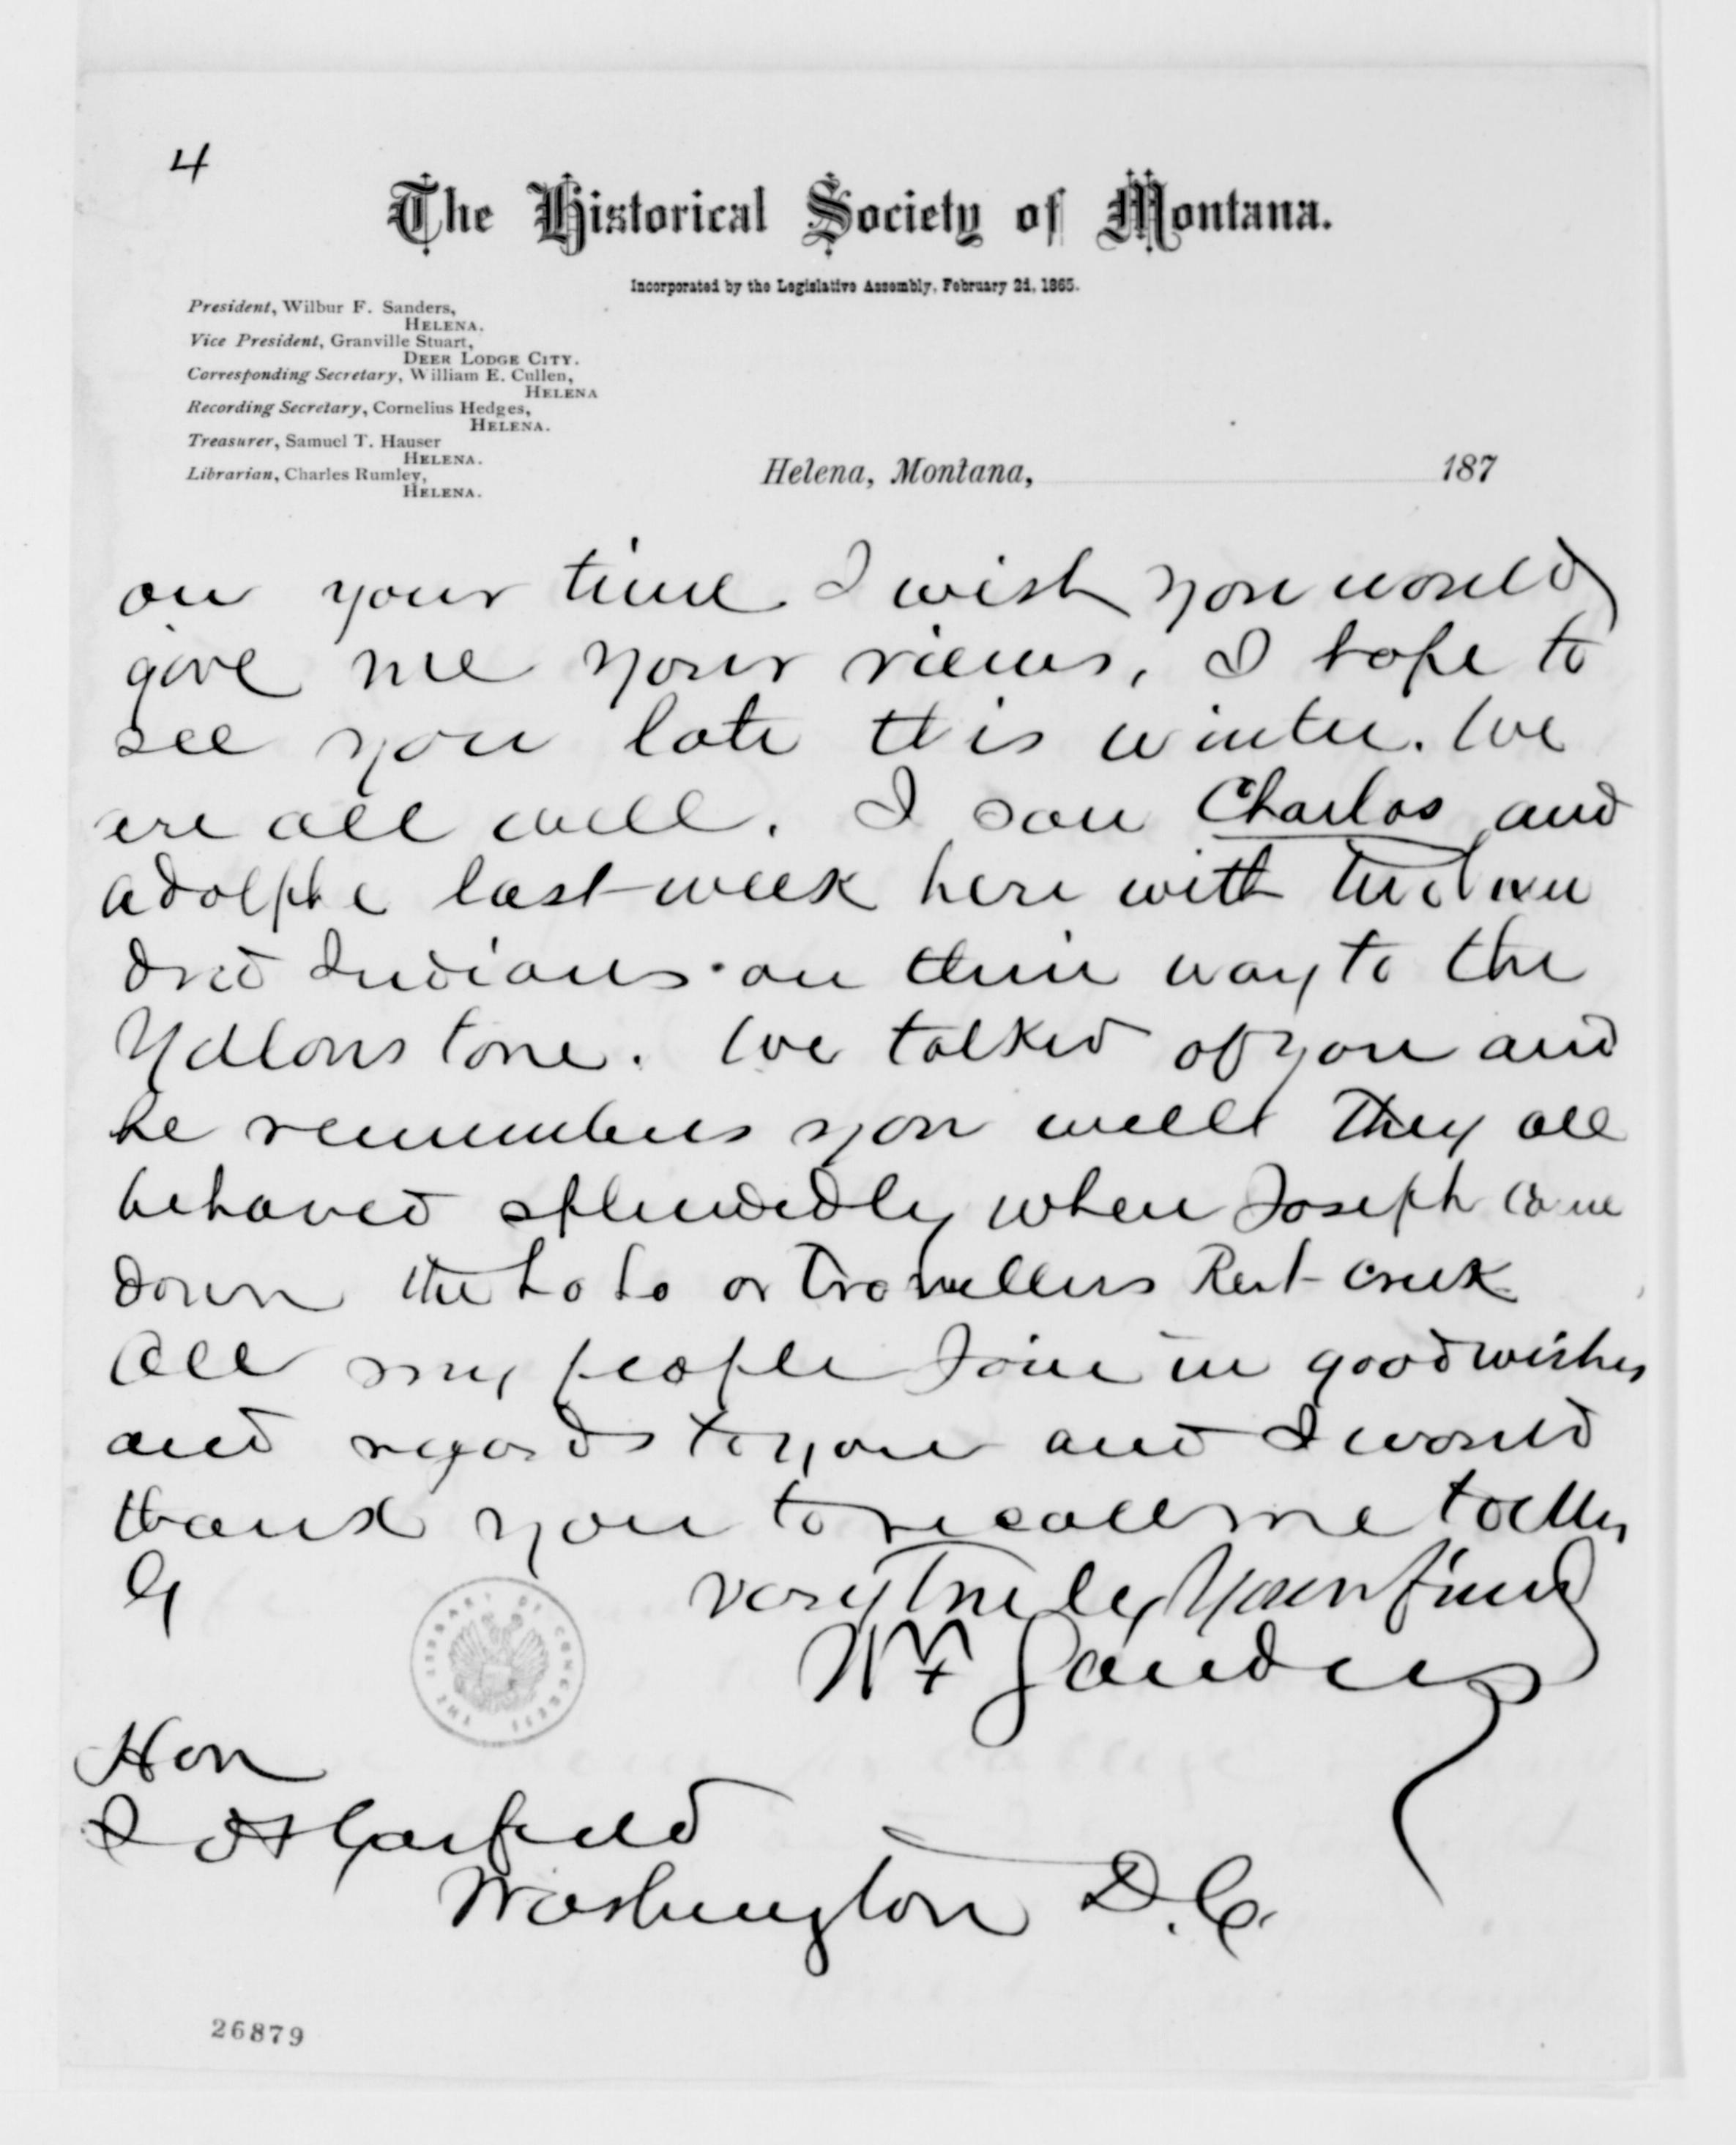 4
The Historical Society of Montana.
Incorporated by the Legislative Assembly, February 2d, 1865.
President, Wilbur F. Sanders,
HELENA.
Vice President, Granville Stuart,
DEER LODGE CITY.
Corresponding Secretary, William E. Cullen,
HELENA
Recording Secretary, Cornelius Hedges,
HELENA.
Treasurer, Samuel T. Hauser
HELENA.
Librarian, Charles Rumley,
HELENA.
Helena, Montana, 187
on your time I wish you would
give me your views, I hope to
see you late this winter. We
are all well. I saw Charlos and
Adolphe last week here with
dred Indians on their way to the
Yellowstone. We talked of you and
he remembers you well They all
behaved splendedly when Joseph came
down the Lo Lo or Travellers Rest creek
All my people Join in good wishes
and regards to you and I would
thank you to recall me to Mrs
G very Truly Your friend
WF Sanders
THE LIBRARY OF CONGRESS
Hon
J A Garfield
Washington D.C.
26879